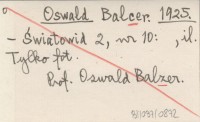 Oswald Balcer. 1925.
- Światowid 2, nr 10: , il.
Tylko fot.
Prof. Oswald Balzer.